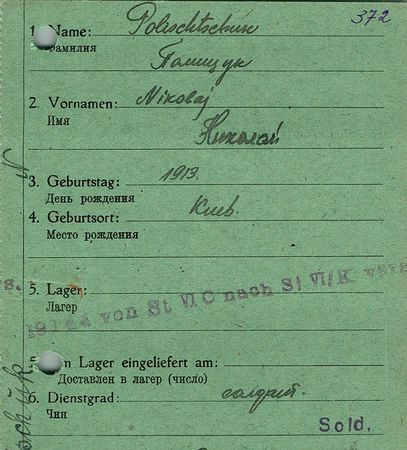 372
1. Name:
Фамилия
Полищук
2. Vornamen: Nikolaj
Имя
Николай
3. Geburtstag: 1913.
День рождения
4. Geburtsort: Киев.
Место рождения
5. Lager:
Лагер
von St VI C nach St VI/K
Lager eingeliefert am:
Доставлен в лагер (число)
6. Dienstgrad: солдат.
Чин
Sold.